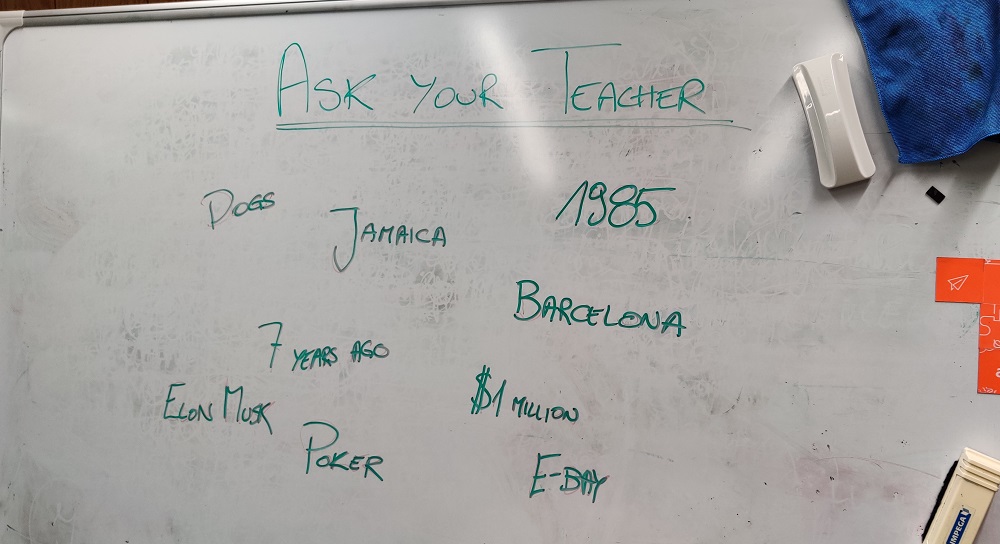 ASK YOUR TEACHER
DOGS
JAMAICA
1985
BARCELONA
7 YEARS AGO
ELON MUSK
$1 MILLION
POKER
E-BAY